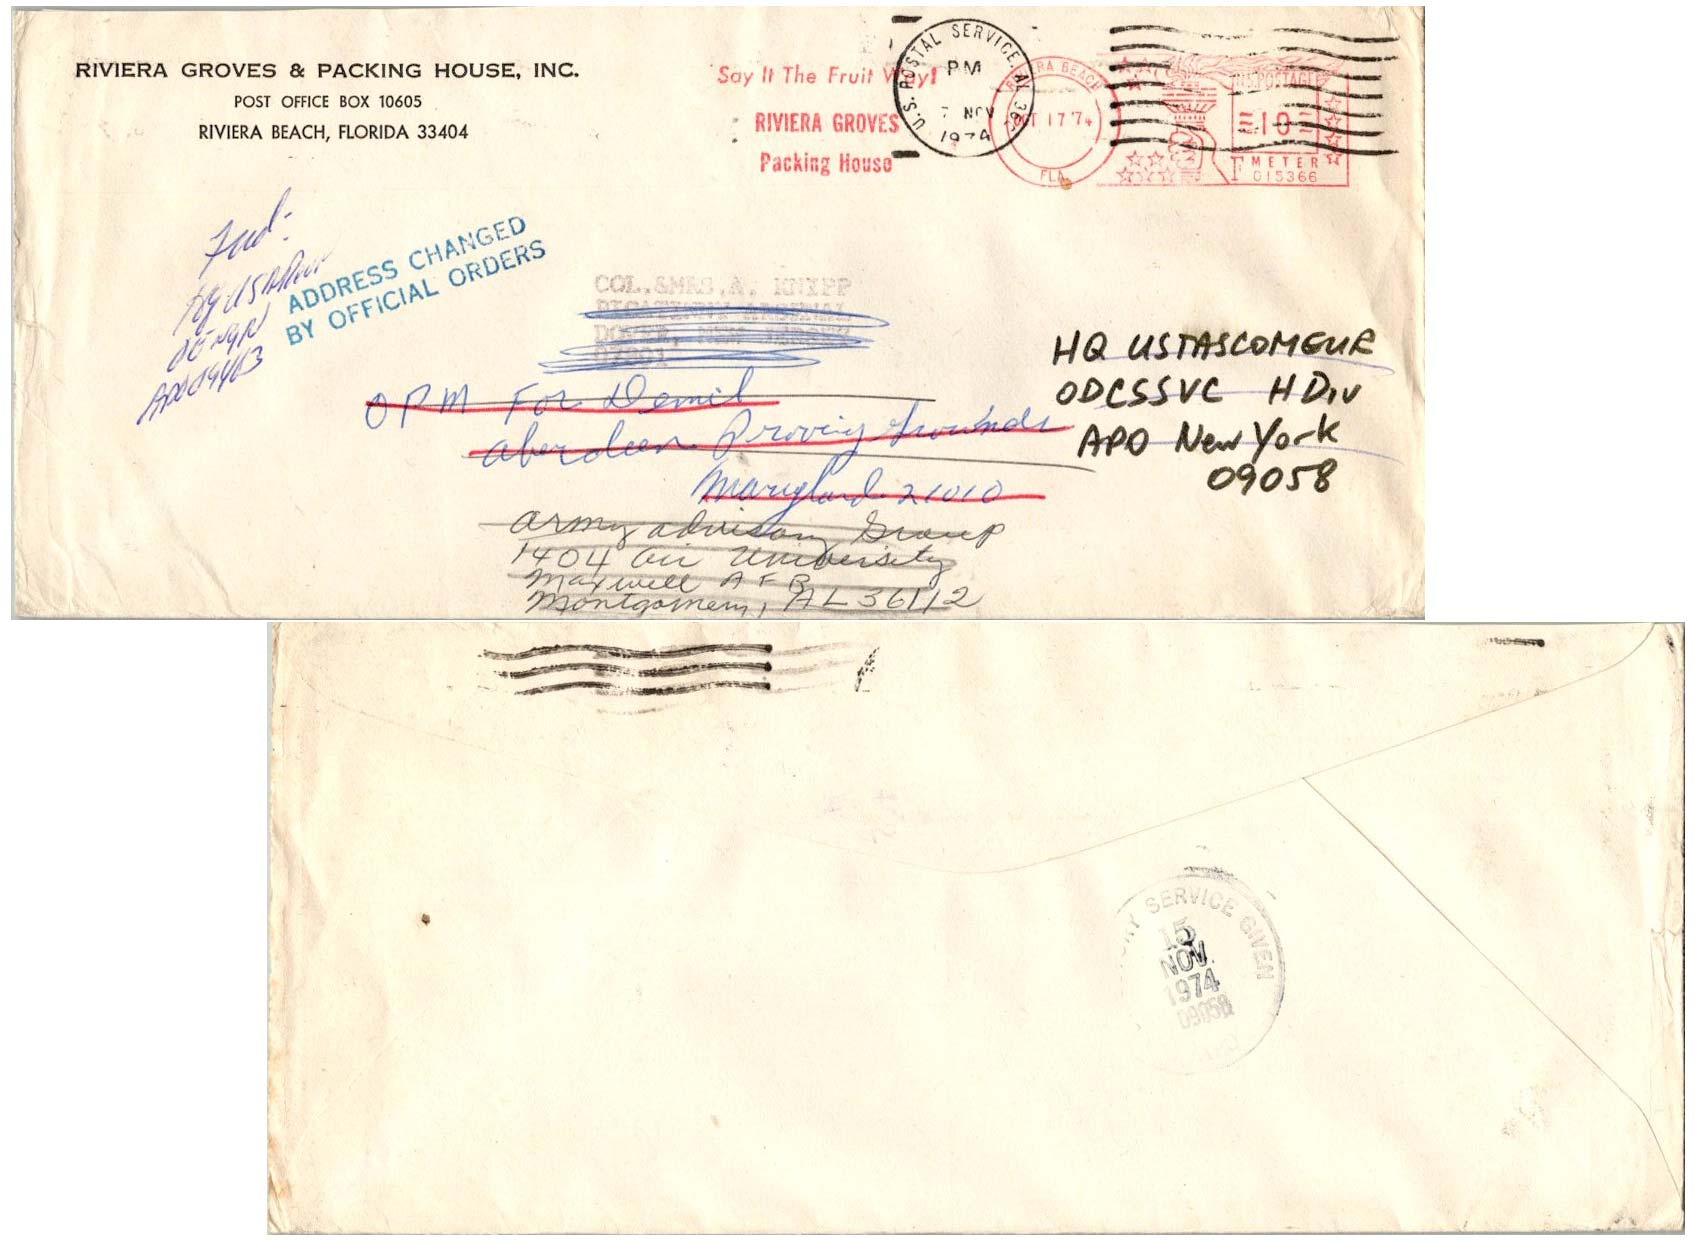 RIVIERA GROVES & PACKING HOUSE, INC.
POST OFFICE BOX 10605
RIVIERA BEACH, FLORIDA 33404
Say It The Fruit Way!
RIVIERA GROVES
Packing House
U.S. POSTAL SERVICE, AL
PM
7 NOV
1974
RIVIERA BEACH
OCT 17 '74
FLA.
U.S. POSTAGE
10
METER
015366
Fwd-
APO 09403
ADDRESS CHANGED
BY OFFICIAL ORDERS
COL.&MRS.A. KNIPP
PICATINNY ARSENAL
DOVER, NEW JERSEY
07801
OPM For Demil
Aberdeen Proving Grounds
Maryland 21010
Army Advisory Group
1404 Air University
Maxwell AFB
Montgomery, AL 36112
HQ USTASCOMEUR
ODCSSVC H Div
APO New York
09058
SERVICE GIVEN
15
NOV.
1974
09058